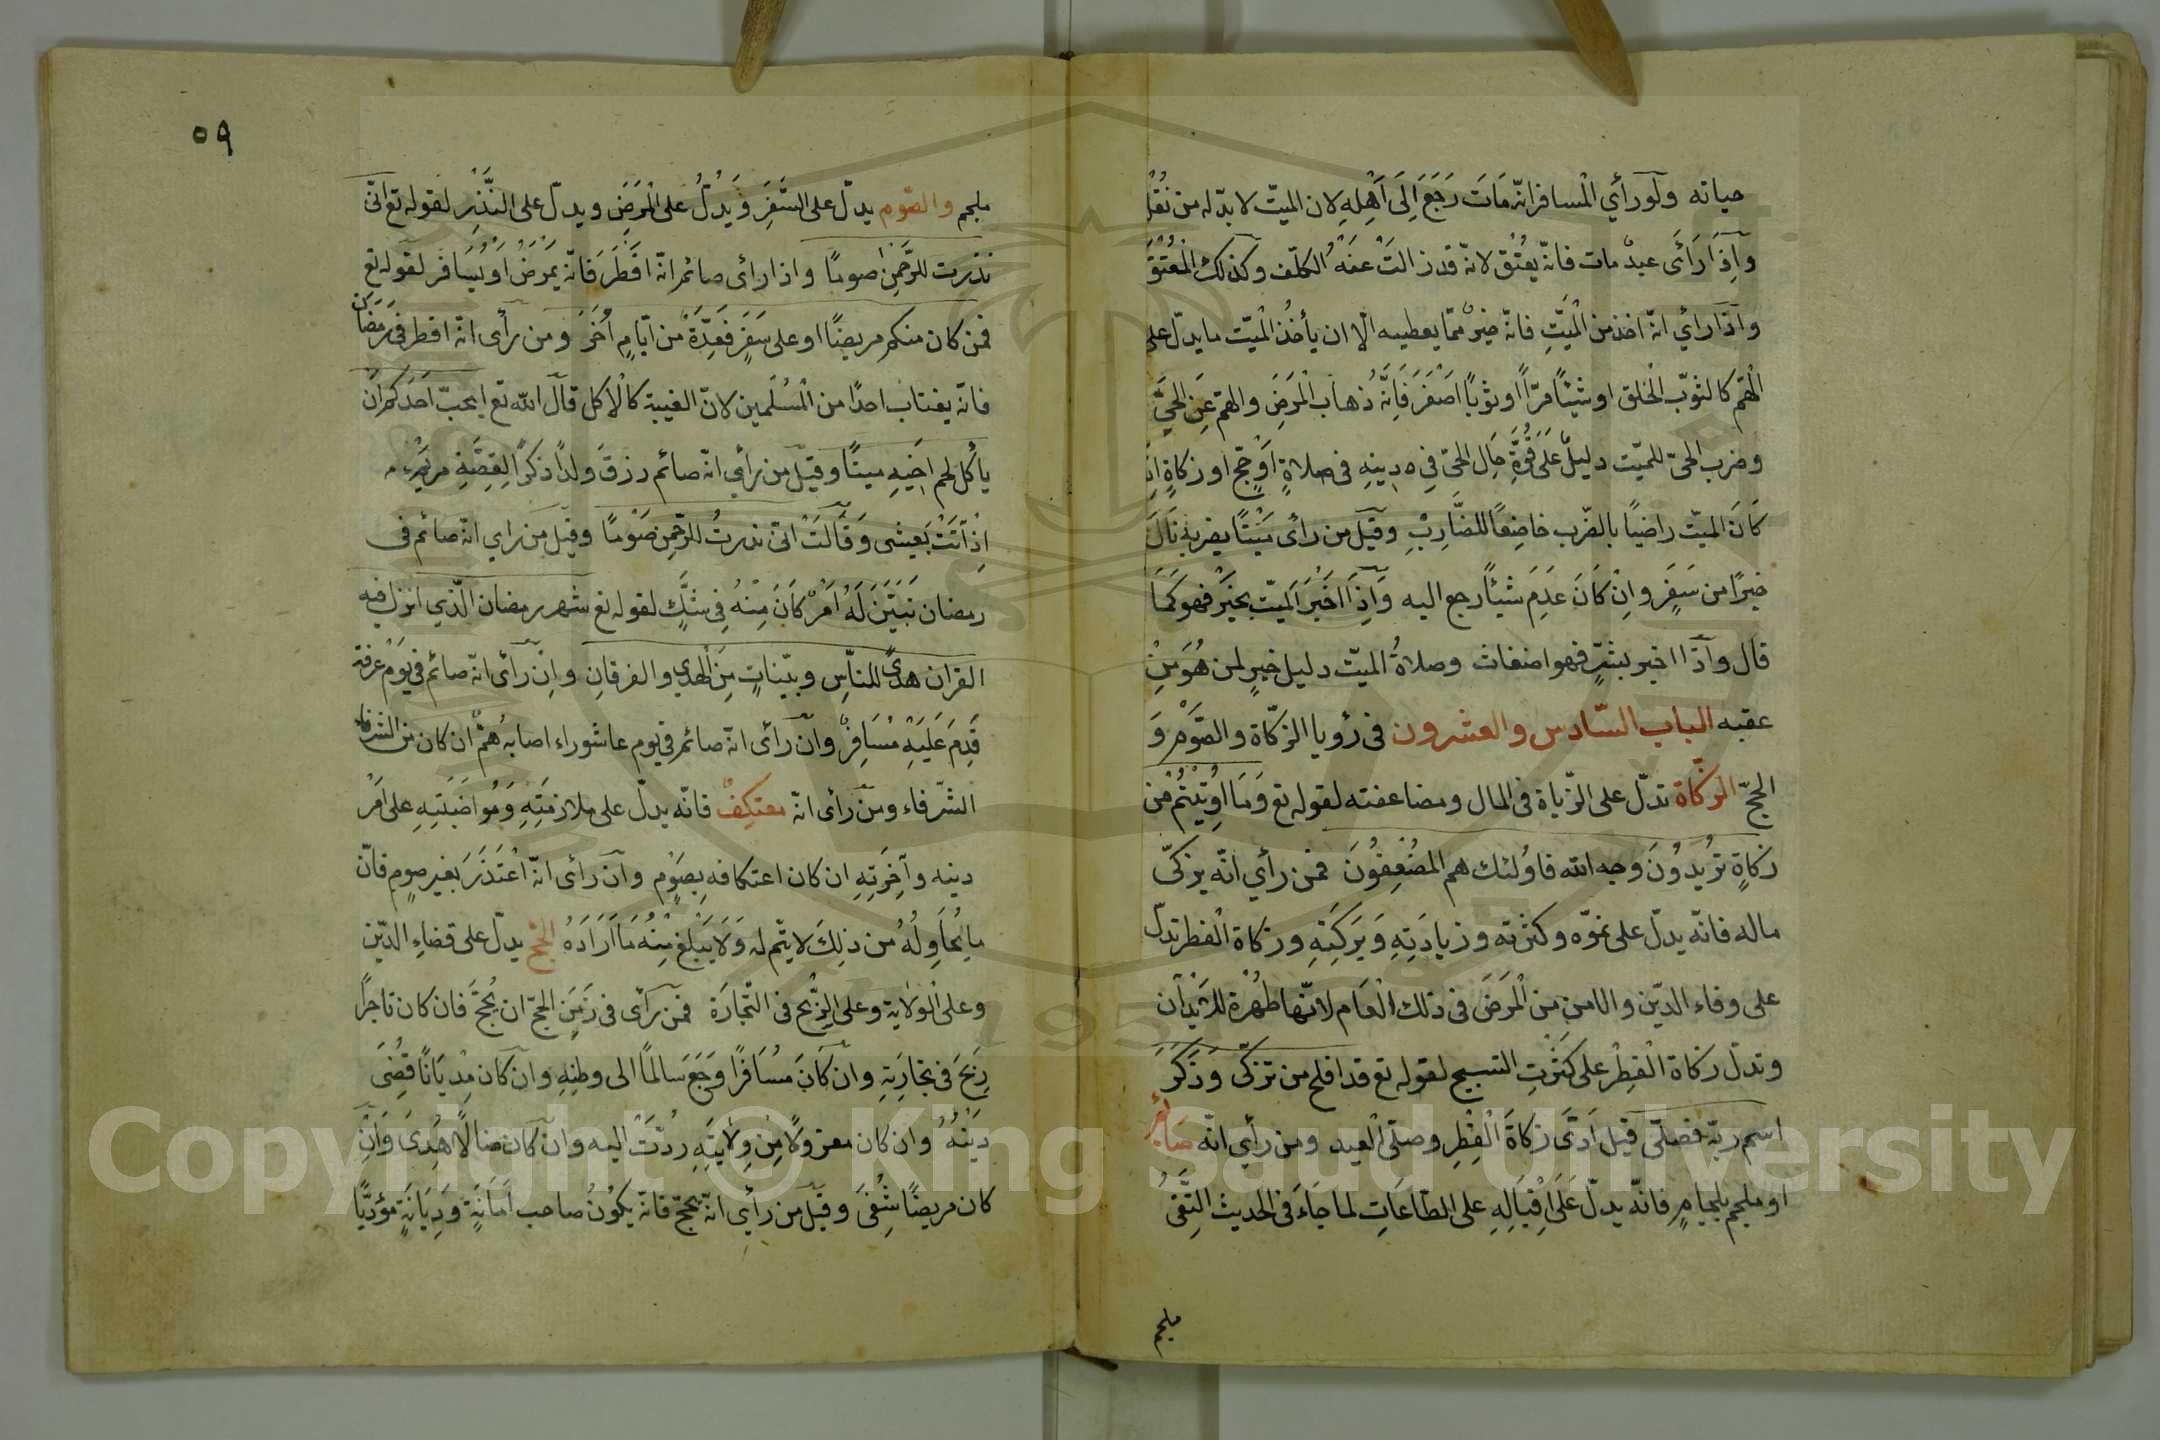 حياته ولو رأي المسافر انّه مَاتَ رَجَعَ اِلَى اَهْلِهِ لان الميّت لا بدّ له من نُقْل
واِذَا رَأَى عبدٌ مات فانّه يعُتْق لانّه قد زالتْ عنهُ الكلف وكذلك المُعْتَق
واذا رأي انّه اخذ من الْميّتِ فانّه خيرٌ ممّا يعطيه الّا ان يأخُذ الْميّت ما يدلّ على
الْهَمّ كالثوب الْخلق او شيئًا مرّاً او ثوبًا اَصْفَرَ فَانَّه ذهاب الْمَرَضَ والهمّ عَنِ الحيّ
وضرب الحىّ للميّت دليلٌ عَلَى قُوَّةِ حال الحىّ فِى دينِهِ فى صلاةٍ اَوْ حَجٍّ او زكاةٍ ان
كَانَ الميّت راضيًا بالضّرب خاضِعًا للضَّارِبِ وقيل من رأى مَيْتًا يضربه نَالَ
خيرًا من سَفَرٍ وانْ كَانَ عَدِمَ شيئًا رجع اليه وَاِذَا اخْبَرَ الميّت بخيْرٍ فهو كَمَا
قال واذا اخبر بشرٍّ فهو اضغاث وصلاةُ الميّت دليل خيرٍ لمن هُوَ مِنْ
عقبه الباب السّادس والعشرون فى رؤيا الزكّاة والصّوم وَ
الحجّ الزكّاة تدّل على الزّياة فى المال ومضاعفته لقوله تع وَمَا اوُتيْتُمْ مْن
زكاةٍ تُريُدوُنَ وجه الله فاوُلئك هم المضْعِفوُنَ فمن رأي انّه يزكىّ
ماله فانّه يدلّ على نموّه وكثرته وزيادَتِهِ وَبَركَتِهِ وزكاة الْفطر تدلّ
على وفاء الديّن والامن من الْمرَض فى ذلك الْعَام لانّها طُهْرة للابْدَان
وتدلّ زكاة الْفِطْر على كَثْرتِ التسبيح لقوله تع قد افلح من تزكّى وَذَكَرَ
اسم ربّه فصلّى قيل اَدّى زكاةَ الْفِطْرِ وصلّى الْعيد ومن رأي انّه صَائم
او ملجم بلجامٍ فانّه يدلّ عَلَى اِقْبَالِهِ على الطّاعَاتِ لما جَاءَ فى الحديث التقىُّ
ملجم
٥٩
ملجم والصّوم يدلّ على السّفَرِ وَيَدُلُّ على الْمَرَضِ ويدلّ على النَّذْرِ لقوله تع انّى
نذرت للرَّحمن صومًا واذا رأى صائم انّه افْطَرَ فانّه يَمْرَضُ اَوْ يُسَافر لقوله تع
فمن كان منكم مريضًا او على سَفَرٍ فَعِدَّةٌ من ايّامٍ اُخَرَ ومن رأى انّه افطر فى رَمَضان
فانّه يغتاب احدًا من الْمُسْلمين لانّ الغيبة كالْاكل قال الله تع ايحبّ اَحَدُكم ان
يأكُلَ لحم اخيهِ ميتًا وقيل من رأي انّه صائم رزقَ ولداً ذكرًا لقِصّةِ مريم
اِذْ اَتَتْ بعيسَى وَقَالَتْ انّى نذرتُ للرّحمن صَوْمًا وقيل من رأي انّه صائم فى
رمضان تبَيّنَ لَهُ اَمْرٌ كَانَ مِنْهُ فِى شَكٍّ لقوله تع شهر رمضان الّذي انزل فيه
القران هدىً للناّسِ وبيّناتٍ مِنَ الْهدي والفرقانِ واِنْ رأى انّه صائم فى يَوْم عرفة
قَدِمَ عَلَيْهِ مُسَافِرٌ وان رأى انّه صائم فى يوم عاشوراء اصابه همٌّ ان كان من الشرفاء
الشّرفاء ومن رأى انّه معتكفٌ فانّه يدلّ على ملازمَتِهِ وَمُواضَبَتِهِ على اَمْر
دينه وآخِرَتِهِ ان كان اعتكافه بِصَوْمٍ وان رأى انّه اعْتَذَرَ بغير صومٍ فانّ
ما يُحَاوِلُهُ من ذلِكَ لا يتّم له وَلا يَبْلغ مِنْهُ مَا اَرَادَهُ الحَجّ يدلّ على قضاءِ الديّن
وعلى الْولاية وعلى الرِّبْح فى التّجَارَة فمن رأى فى زَمَنِ الحجّ ان يُحجّ فان كان تاجراً
رَبحَ فى تجارَتِهِ وان كَانَ مسُافرًا رَجَعَ سَالمًا الى وطنِهِ وان كان مِدْيَانًا قُضَى
دَيْنهُ وان كان معزولًا مِن وِلايَتِهِ رُدّتْ اليه وان كان ضالًا هُدِىَ وَان
كان مريضًا شُفىَ وقيل من رأي انّه يحجّ فانّه يكوُنُ صاحب اَمَانةٍ وَدِيَانَةٍ مؤدّيًا
Copyright © King Saud University